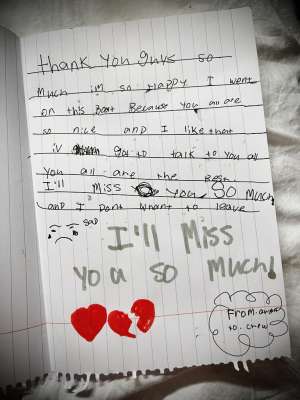 thank You guys so
Much im so Happy I went
on this Boat Because you all are
so nice and I like that
iv got to talk to you all
You all are the Best
I'll Miss you SO Much!
and I Dont whant to leave
sad
I'll Miss
you so Much!
From
to crew